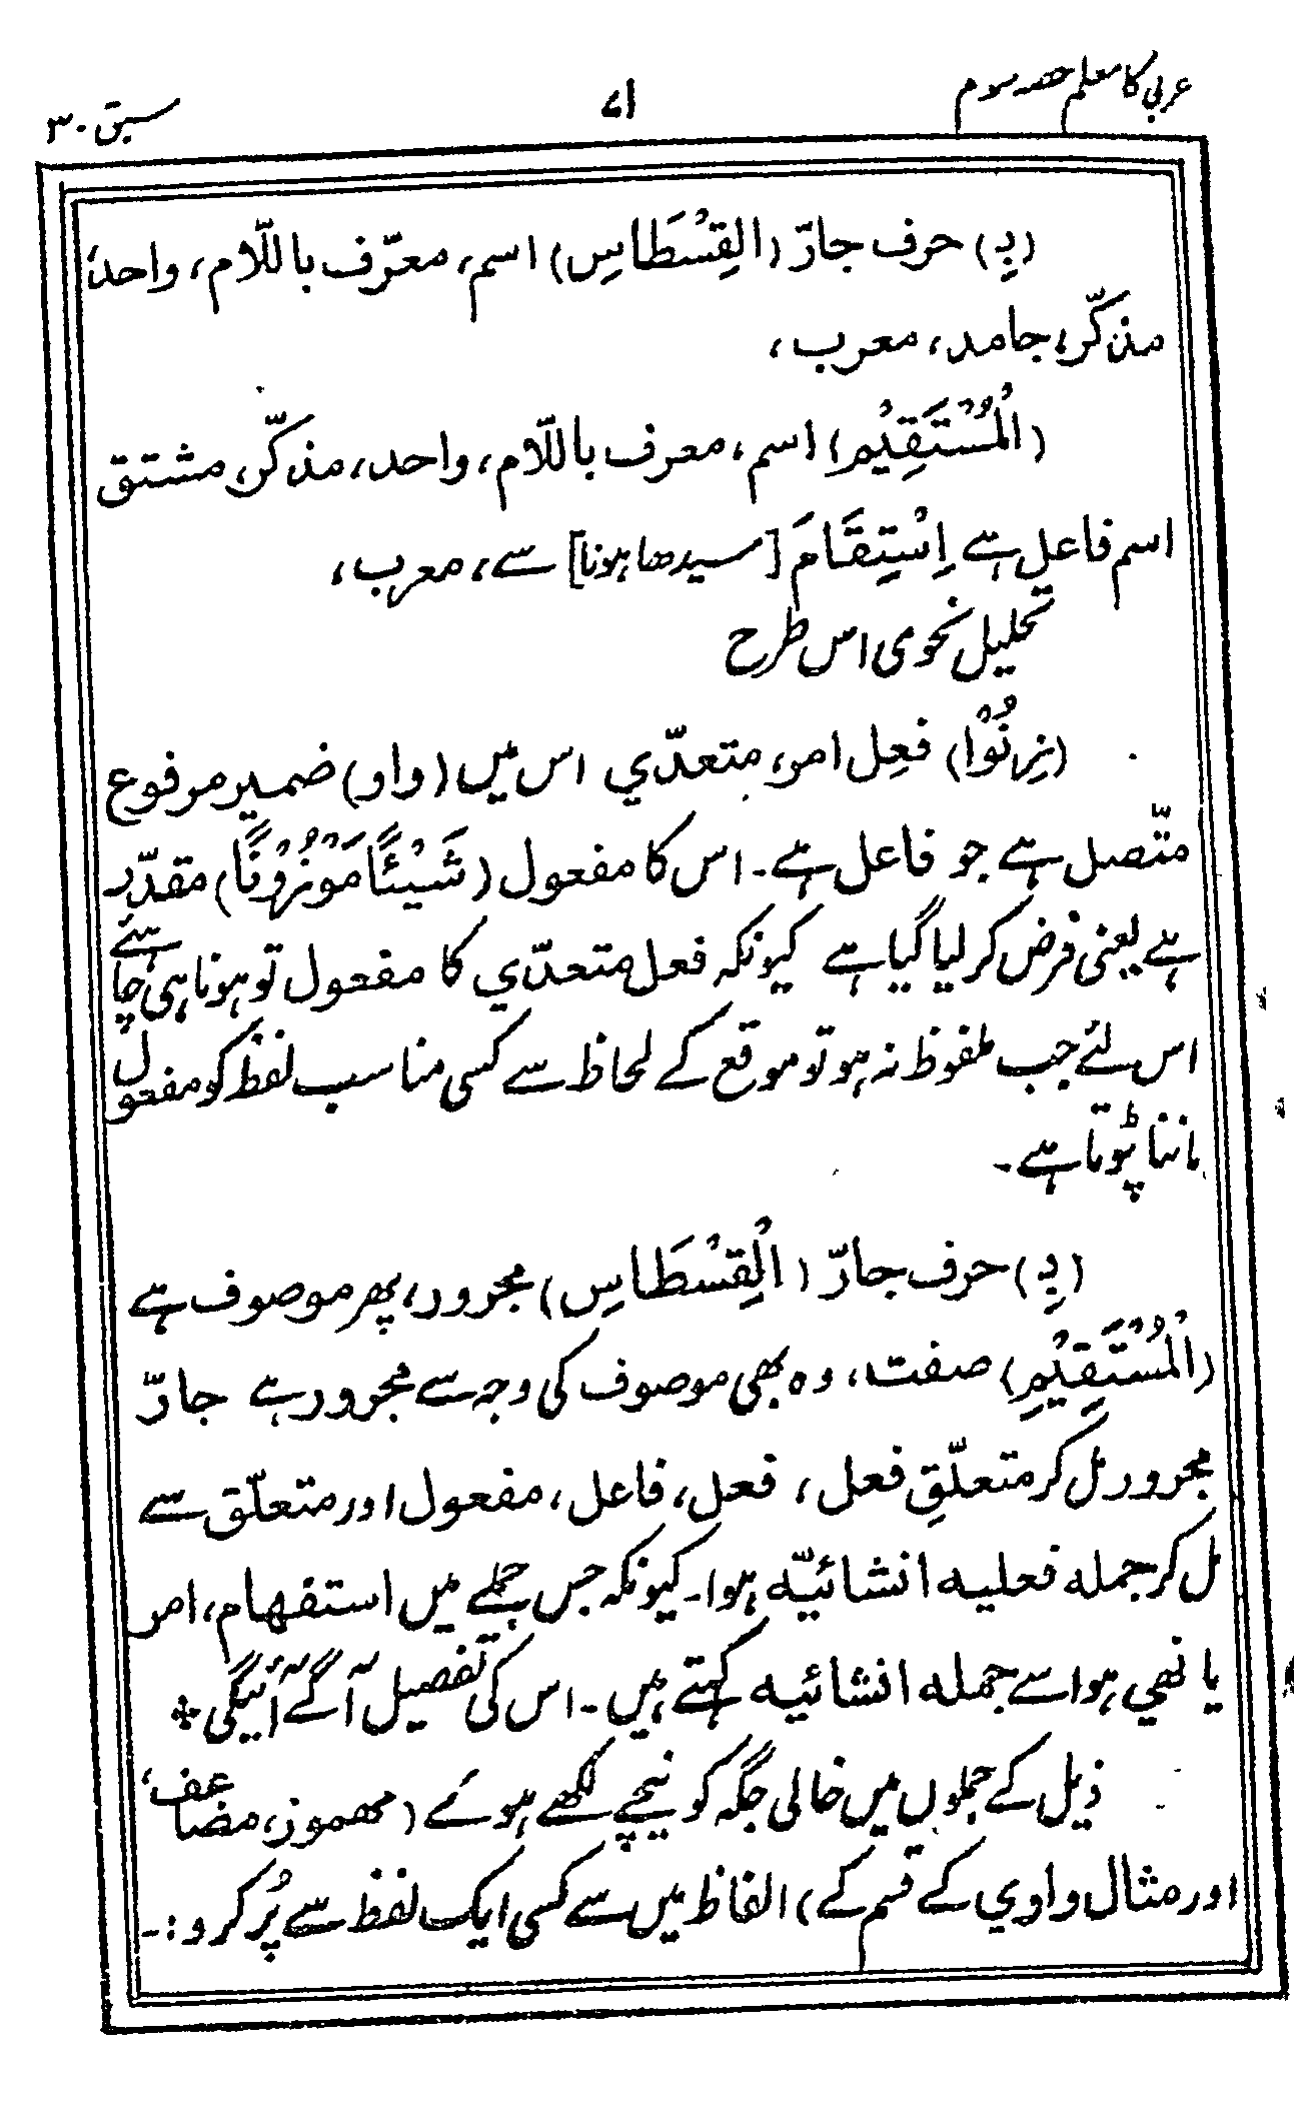 عربی کا معلم حصہ سوم
۷۱
سبق ۳۰
(بِ) حرف جارّ (القِسْطَاسِ) اسم، معرّف باللّام، واحد،
مذکّر، جامد، معرب،
(الْمُسْتَقِيْمِ) اسم، معرف باللّام، واحد، مذکّر، مشتق
اسم فاعل ہے اِسْتِقَامَ [سیدھا ہونا] سے، معرب،
تحلیل نحوی اس طرح
(زِنُوْا) فعِل امر، متعدّي اس میں (واو) ضمیر مرفوع
متّصل ہے جو فاعل ہے۔ اس کا مفعول (شَيْئًا مَوْزُوْنًا) مقدّر
ہے یعنی فرض کر لیا گیا ہے کیونکہ فعل متعدّي کا مفعول تو ہونا ہی چاہئے
اس لئے جب ملفوظ نہ ہو تو موقع کے لحاظ سے کسی مناسب لفظ کو مفعول
ماننا پڑتا ہے۔
(بِ) حرف جارّ (الْقِسْطَاسِ) مجرور، پھر موصوف ہے
(الْمُسْتَقِيْمِ) صفت، وہ بھی موصوف کی وجہ سے مجرور ہے جارّ
مجرور مل کر متعلّقِ فعل، فعل، فاعل، مفعول اور متعلّق سے
مل کر جملہ فعلیہ انشائیّہ ہوا۔ کیونکہ جس جملے میں استفہام، امر
یا نہي ہو اسے جملہ انشائیہ کہتے ہیں۔ اس کی تفصیل آگے آئیگی *
ذیل کے جملوں میں خالی جگہ کو نیچے لکھے ہوئے (مہموز، مضاعف،
اور مثال واوي کے قسم کے) الفاظ میں سے کسی ایک لفظ سے پُر کرو:۔